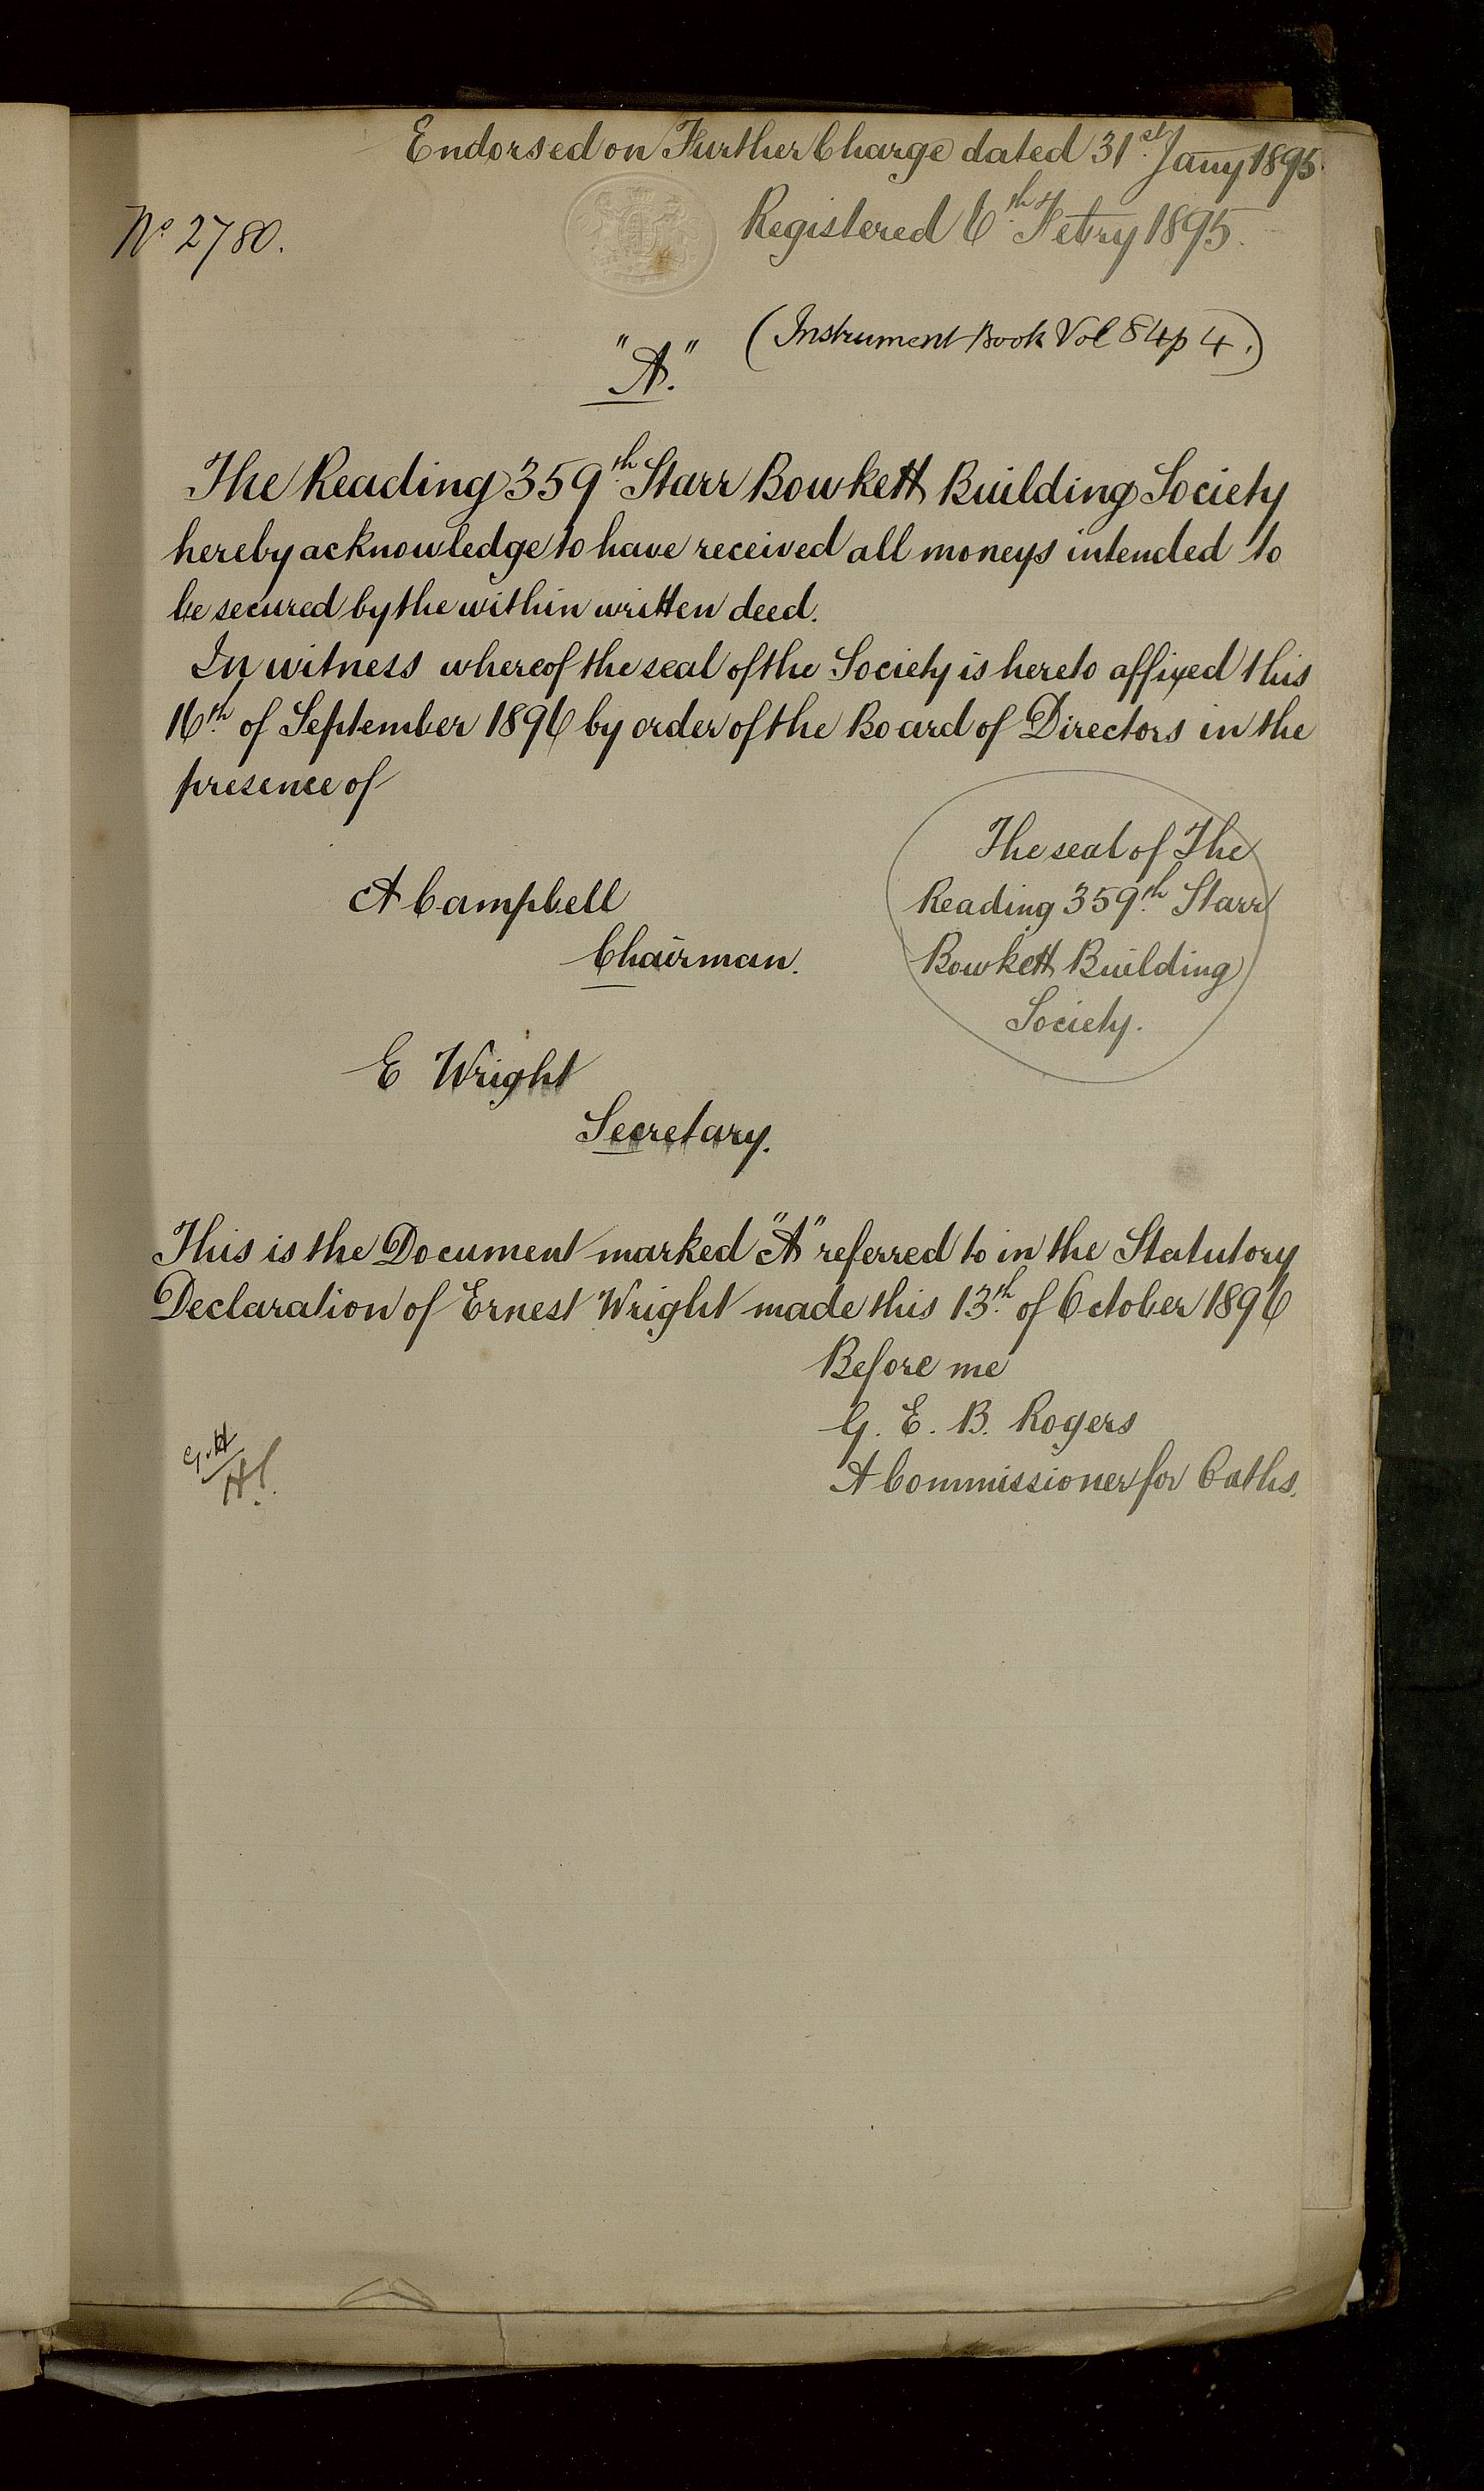 Endorsed on Further Charge dated 31st Jany 1895.
No 2780.
Registered 6th Febry 1895.
"A."
(Instrument Book Vol 84 p 4.)
The Reading 359th Starr Bowkett Building Society
hereby acknowledge to have received all moneys intended to
be secured by the within written deed.
In witness whereof the seal of the Society is hereto affixed this
16th of September 1896 by order of the Board of Directors in the
presence of
A Campbell
Chairman.
E Wright
Secretary.
The seal of The
Reading 359th Starr
Bowkett Building
Society.
This is the Document marked "A" referred to in the Statutory
Declaration of Ernest Wright made this 13th of October 1896
Before me
G. E. B. Rogers
A Commissioner for Oaths.